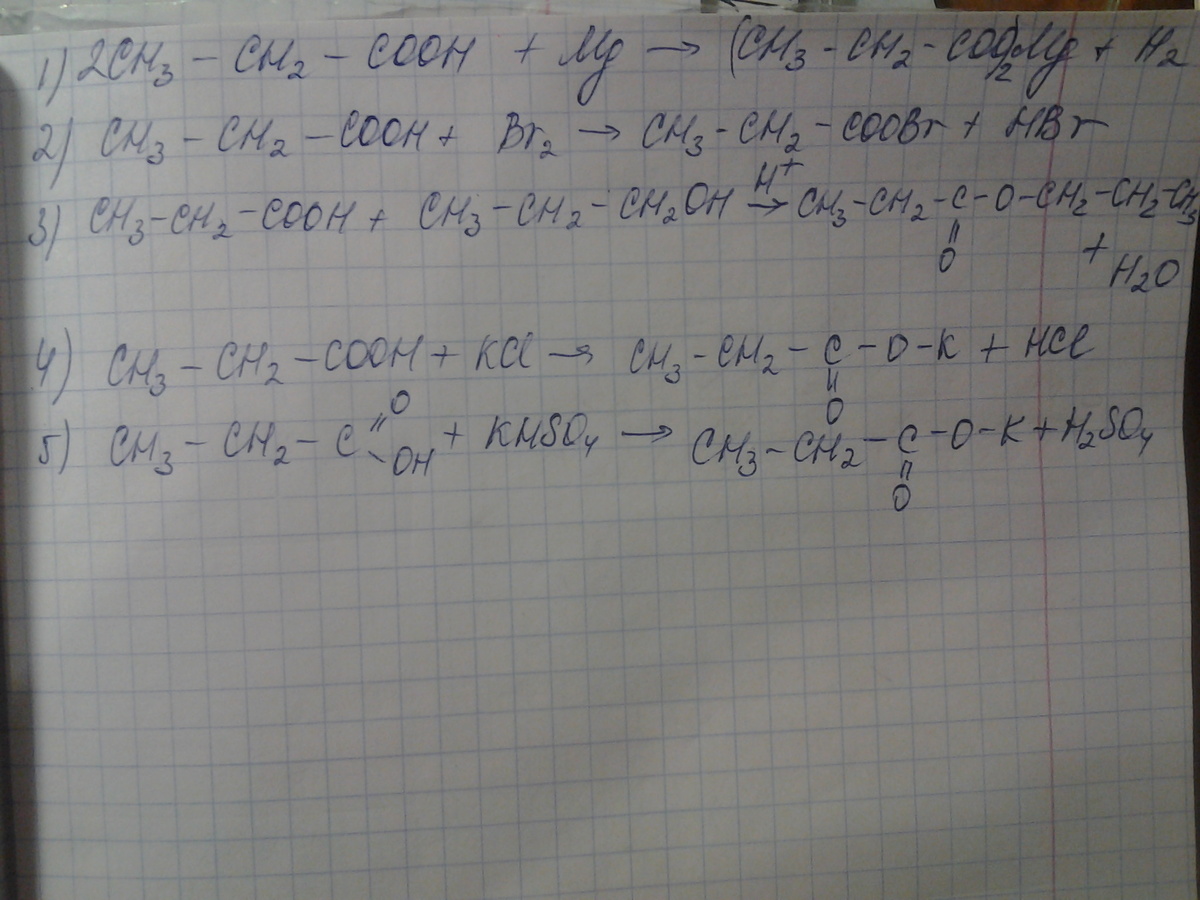 1) 2CH₃ – CH₂ – COOH + Mg → (CH₃ – CH₂ – COO)₂Mg + H₂
2) CH₃ – CH₂ – COOH + Br₂ → CH₃ – CH₂ – COOBr + HBr
H⁺
3) CH₃ – CH₂ – COOH + CH₃ – CH₂ – CH₂OH → CH₃ – CH₂ – C – O – CH₂ – CH₂ – CH₃
||
O
+
H₂O
4) CH₃ – CH₂ – COOH + KCl → CH₃ – CH₂ – C – O – K + HCl
||
O
O
//
5) CH₃ – CH₂ – C + KHSO₄ → CH₃ – CH₂ – C – O – K + H₂SO₄
\ OH ||
O